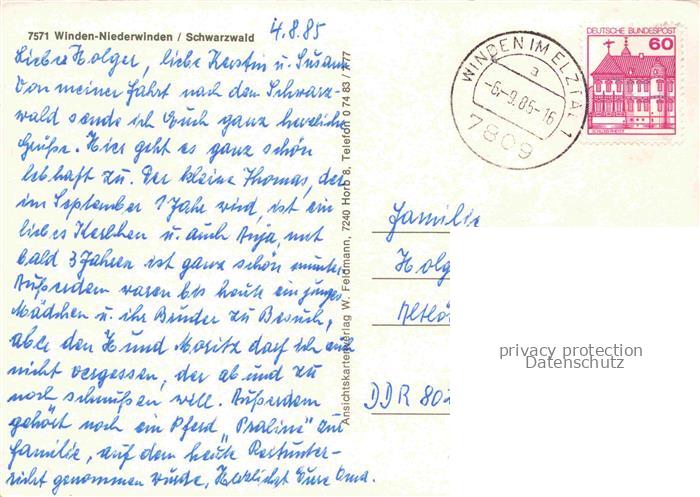 7571 Winden-Niederwinden / Schwarzwald
4.8.85
Lieber Holger, liebe Kerstin u. Susann
Von meiner Fahrt nach dem Schwarz-
wald sende ich Euch ganz herzliche
Grüße. Hier geht es ganz schön
lebhaft zu. Der kleine Thomas, der
im September 1 Jahr wird, ist ein
liebes Kerlchen u. auch Anja, mit
bald 3 Jahren ist ganz schön munter.
Außerdem waren bis heute ein junges
Mädchen u. ihr Bruder zu Besuch,
aber den Hund Moritz darf ich auch
nicht vergessen, der ab und zu
noch schmußen will. Außerdem
gehört noch ein Pferd "Praline" zur
Familie, auf dem heute Reitunter-
richt genommen wurde. Herzlichst Eure Oma.
Ansichtskartenverlag W. Feldmann, 7240 Horb 8, Telefon 0 74 83 / 777
WINDEN IM ELZTAL 1
a
-6.-9.85-16
7809
DEUTSCHE BUNDESPOST
60
SCHLOSS RHEYDT
Familie
Holg
Altlö
DDR 80
privacy protection
Datenschutz